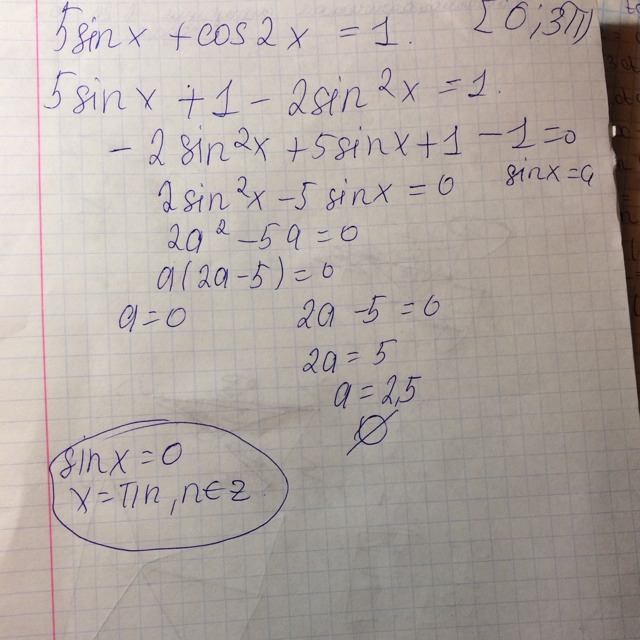 5sinx + cos2x = 1. [0; 3π)
5sinx + 1 - 2sin²x = 1.
- 2sin²x + 5sinx + 1 - 1 = 0
sinx = a
2sin²x - 5sinx = 0
2a² - 5a = 0
a(2a - 5) = 0
a = 0 2a - 5 = 0
2a = 5
a = 2,5
∅
sinx = 0
x = πn, n∈z